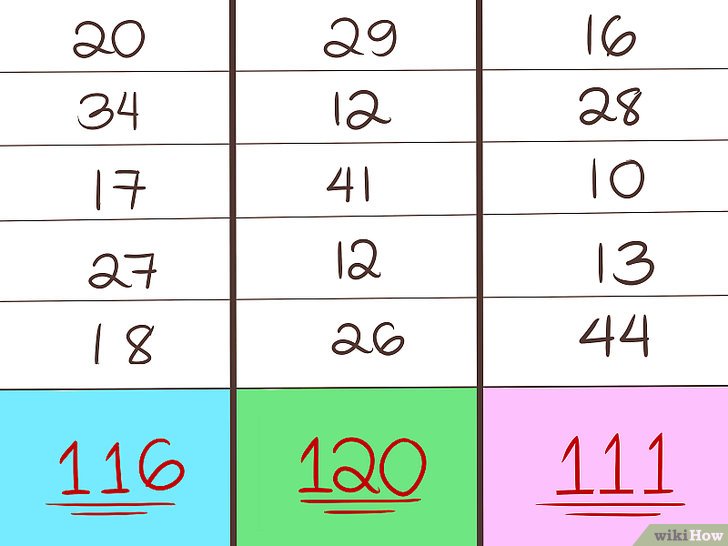 20 29 16
34 12 28
17 41 10
27 12 13
18 26 44
116 120 111
wikiHow